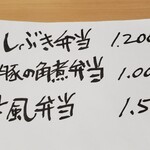 しゃぶき弁当 1.200
豚の角煮弁当 1.00
風弁当 1.5